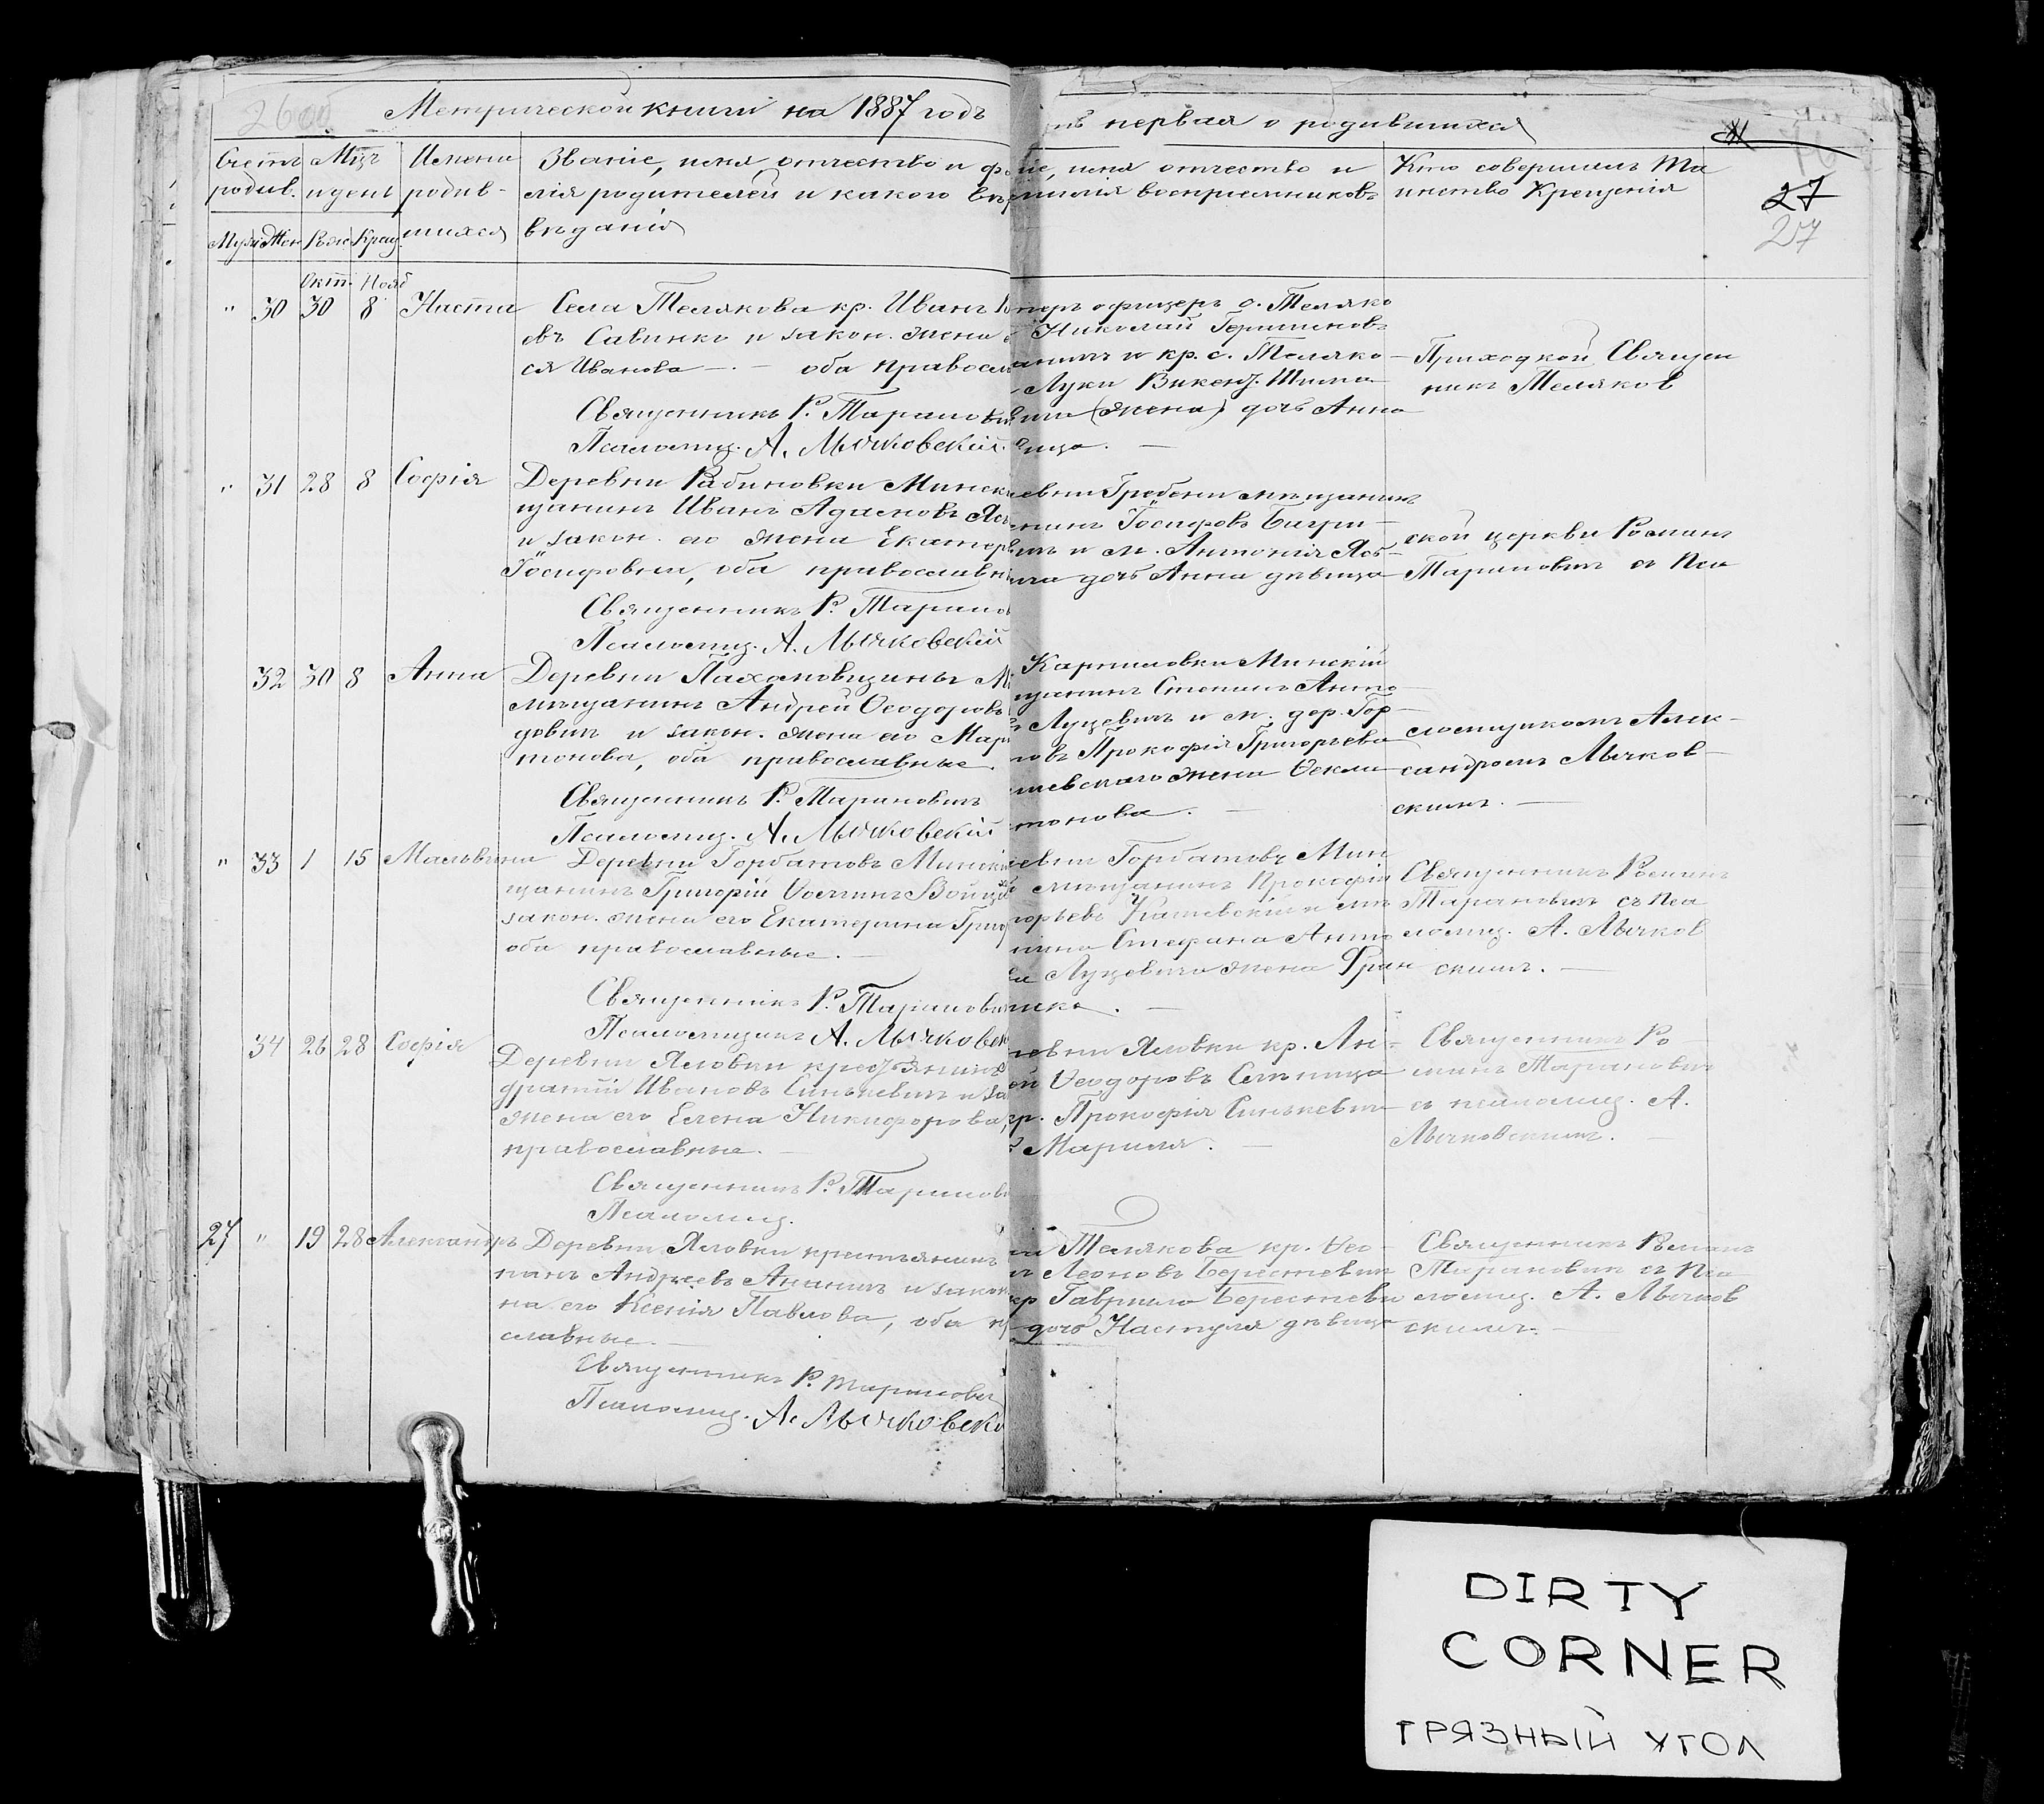 Метрической книги на 1887 годъ
первая о родившихся
27
27
Счетъ родив.
Муж Жен
Мцъ и день
Рож Крещ
Имена родив-
шихся
Званіе, имя отчество и фа
лія родителей и какого вѣро
вѣданія
іе, имя отчество и
милія воспріемниковъ
Кто совершалъ Та
инство Крещенія
Окт. Нояб
" 30 30 8 Наста
Села Телякова кр. Иванъ
евъ Савинко и закон. жена
ся Иванова — оба правосла
Священникъ Р. Таранов
Псаломщ. А. Лычковскій
офицеръ с. Теляко
Николай
и кр. с. Теляко
Луки Викент.
(жена) дочь Анна
вица. —
Приходской Священ
никъ Теляков
" 31 28 8 Софія
Деревни Рабиновки Минск
щанинъ Иванъ Адамовъ
и закон. его жена Екатер
Іосифовна, оба православн
Священникъ Р. Таранов
Псаломщ. А. Лычковскій
евни Гребени мѣщанинъ
Іосифовъ
и м. Антонія Яс
дочь Анна дѣвица
ской церкви Романъ
Тарановичъ съ Пса
32 30 8 Анна
Деревни Пахановщины М
мѣщанинъ Андрей Ѳеодоровъ
девичъ и закон. жена его Мар
тонова, оба православные.
Священникъ Р. Тарановичъ
Псаломщ. А. Лычковскій
Карпиловки Минскій
щанинъ Степанъ Анто
Луцевичъ и м. дер. Гор
Прокофія Григорьева
шевскаго жена Ѳекла
тонова. —
ломщикомъ Алек-
сандромъ Лычков-
скимъ. —
" 33 1 15 Мальвина
Деревни Горбатовъ Минскій
щанинъ Григорій Ѳоминъ Войц
закон. жена его Екатерина Григо
оба православные. —
Священникъ Р. Таранович
Псаломщикъ А. Лычковск
евни Горбатовъ Мин
мѣщанинъ Прокофій
горьевъ Кашевскій и мѣ
Стефана Анто
ва Луцевича жена Фран
ишка. —
Священникъ Романъ
Тарановичъ съ Пса
ломщ. А. Лычков
скимъ. —
34 26 28 Софія
Деревни Яловки крестьянинъ
дратій Ивановъ Синкевичъ и за
жена его Елена Никифорова,
православные. —
Священникъ Р. Таранов
Псаломщ.
евни Яловки кр. Ан-
ей Ѳеодоровъ
кр. Прокофія Синкевич
Мариля. —
Священникъ Ро
манъ Тарановичъ
съ псаломщ. А.
Лычковскимъ. —
27 " 19 28 Александръ
Деревни Яловки крестьянинъ
манъ Андреевъ Ананичъ и закон
на его Ксенія Павлова, оба п
славные. —
Священникъ Р. Таранович
Псаломщ. А. Лычковск
Телякова кр. Ѳео-
Леоновъ Берестевичъ
кр Гаврило Берестеви
дочь Настуля дѣвица
Священникъ Романъ
Тарановичъ съ Пса
ломщ. А. Лычков
скимъ. —
DIRTY
CORNER
ГРЯЗНЫЙ УГОЛ